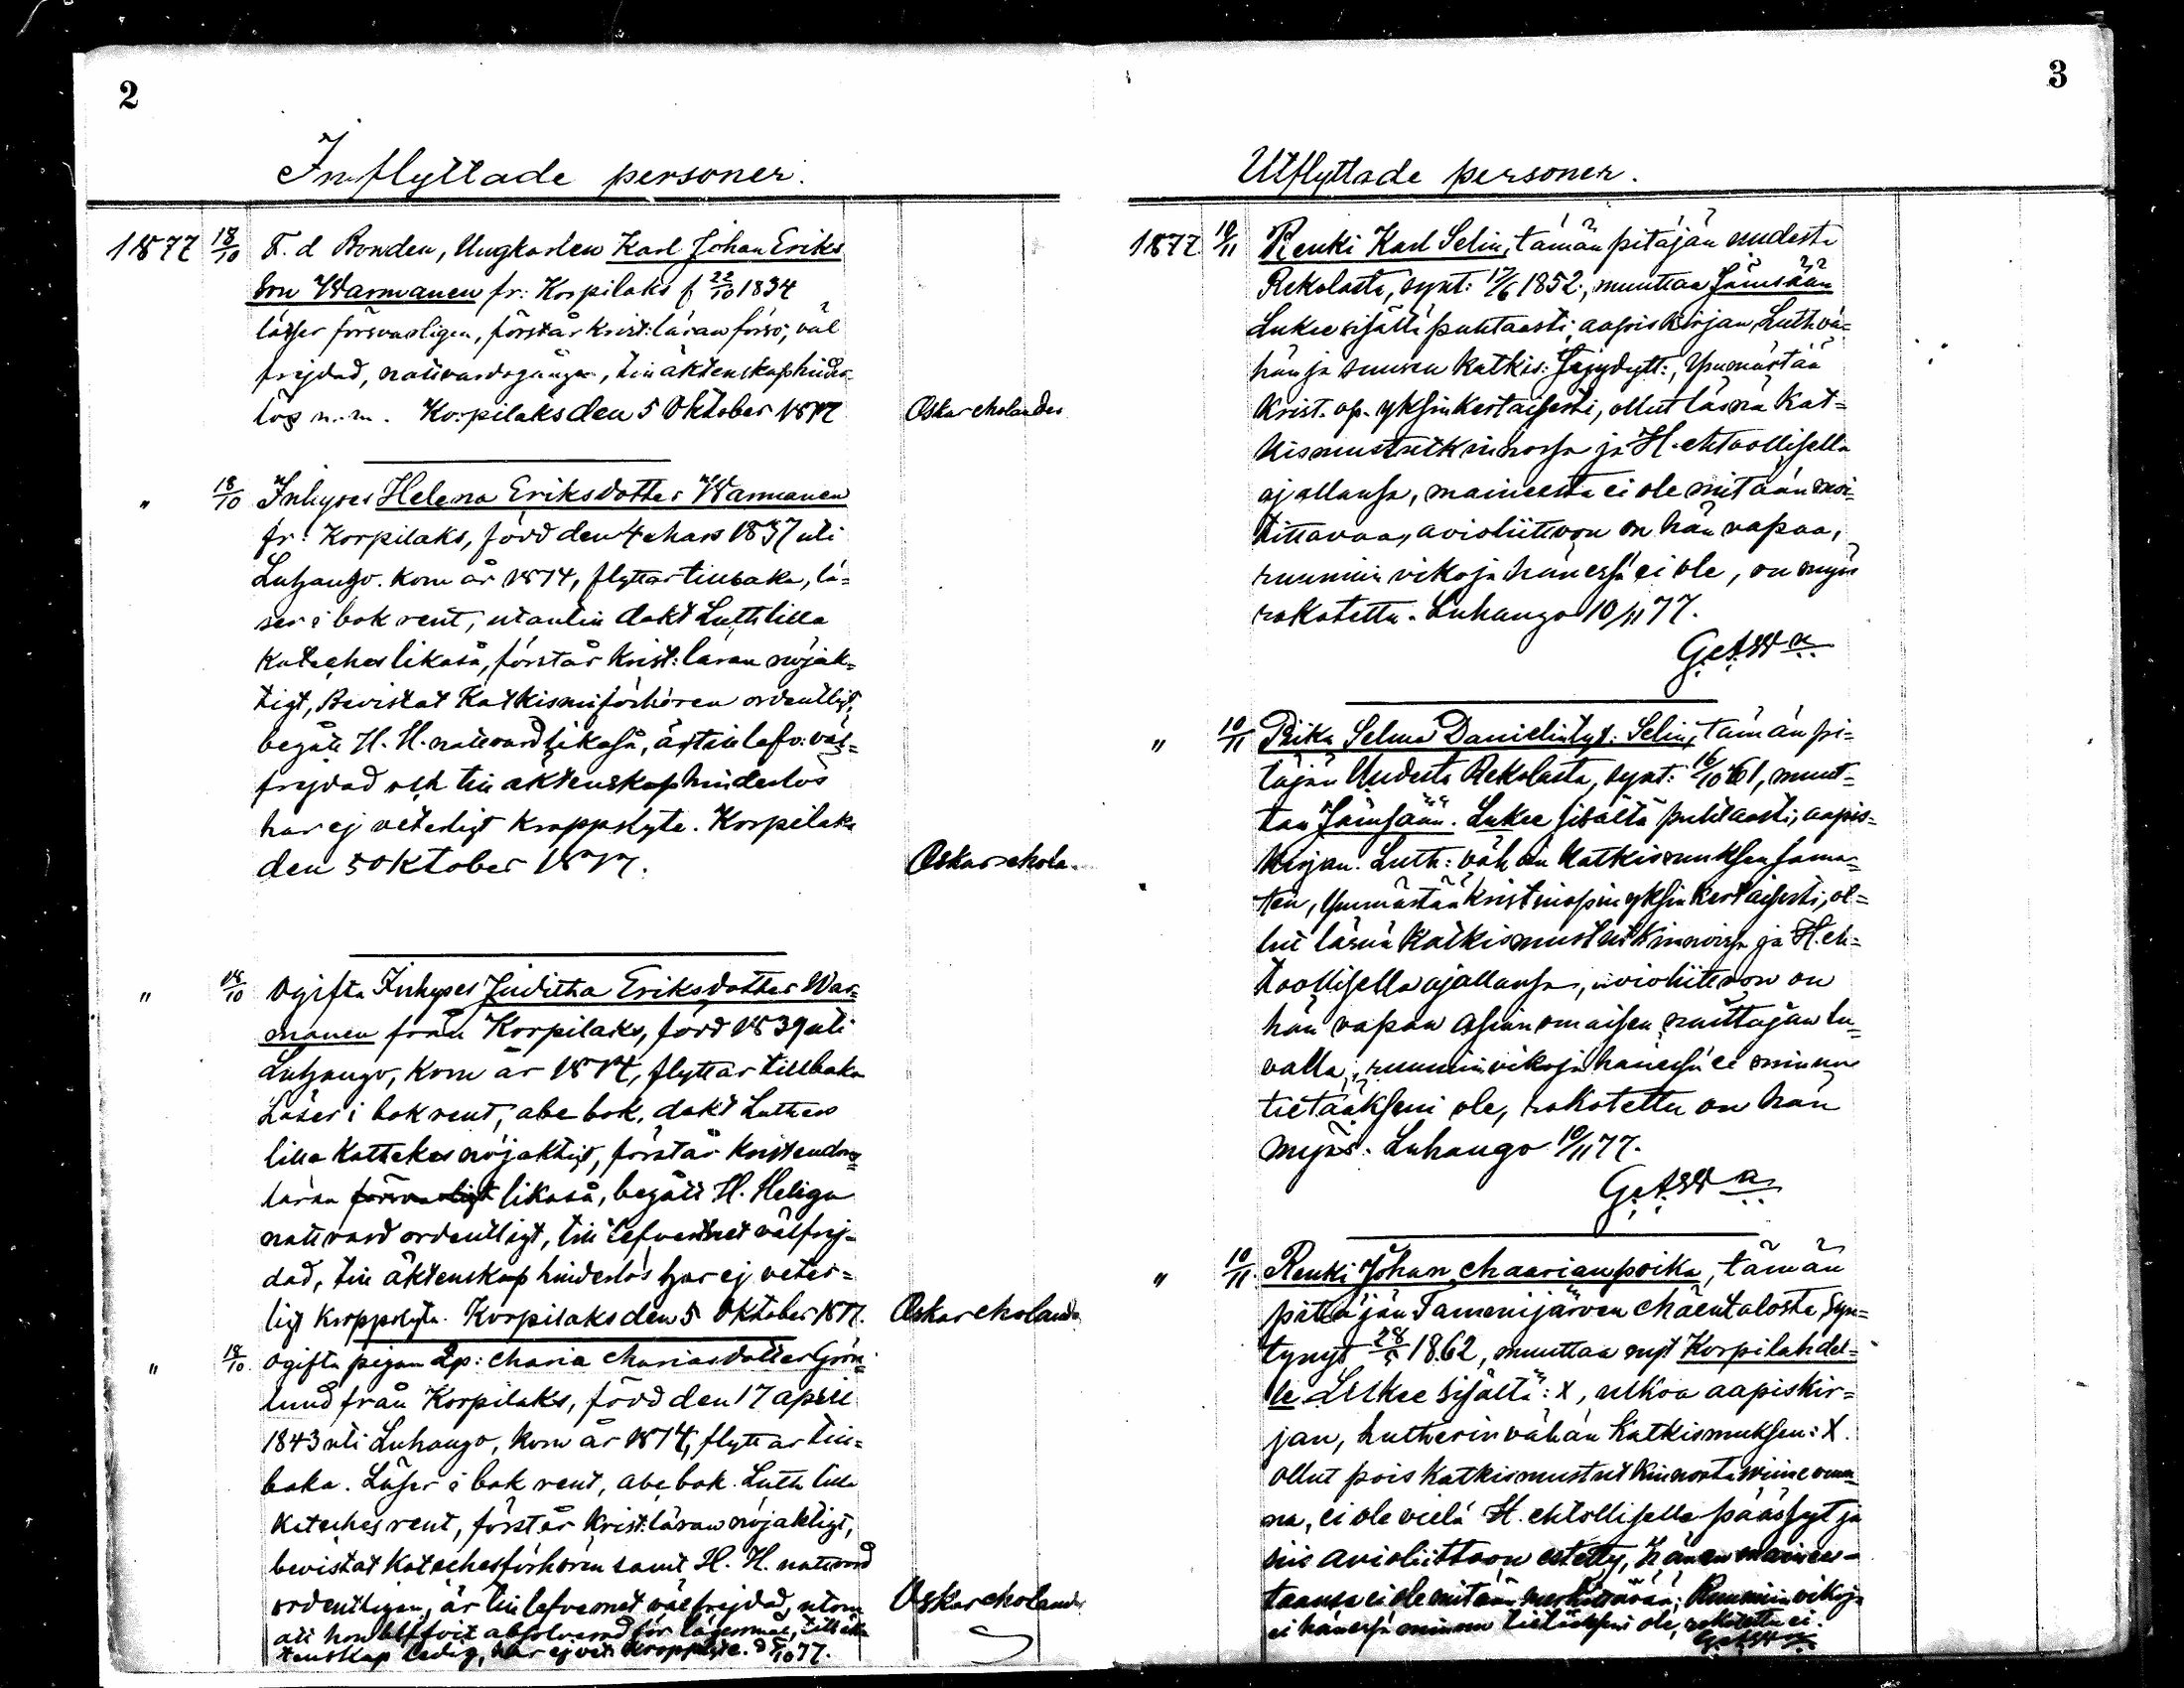 2
Inflyttade personer.
1877 18/10 F. d Bonden, Ungkarlen Karl Johan Eriks
son Warmanen fr: Korpilaks f 22/10 1834
läser försvarligen, förstår Krist: läran förso; väl
frejdad, nattvardsgången, till äktenskap hinder-
lös m. m. Korpilaks den 5 Oktober 1877 Oskar Molander
" 18/10 Inhyses Helena Eriksdotter Warmanen
fr: Korpilaks, född den 4 Mars 1837 uti
Luhango. Kom år 1874, flyttar tillbaka, lä=
ser i bok rent, utantill dakt Luth lilla
Kateches likaså, förstår Krist: läran nöjak=
tigt, Bevistat Katkismiförhören ordentligt,
begått H. H. nattvard likaså, är till lefv: väl=
frejdad och till äktenskap hinderlös
har ej veterligt Kroppslyte. Korpilaks
den 5 Oktober 1877. Oskar Mola
" 18/10 Ogifta Inhyses Juditha Eriksdotter War=
manen från Korpilaks, född 1839 uti
Luhango, Kom år 1874, flyttar tillbaka
Läser i bok rent, abc bok, dakt Luthers
lilla Kattekes nöjaktigt, förstår Kristendoms
läran försvarligt likaså, begått H. Heliga
nattvard ordentligt, till lefvernet välfrej-
dad, till äktenskap hinderlös har ej veter=
ligt Kroppslyte. Korpilaks den 5 Oktober 1877. Oskar Molande
" 18/10. Ogifta pigan Lp: Maria Mariasdotter Grön
lund från Korpilaks, född den 17 april
1843 uti Luhango, Kom år 1874, flyttar till=
baka. Läser i bok rent, abc bok. Luth lilla
Kateches rent, förstår Krist: läran nöjaktigt,
bevistat Katechesförhören samt H. H. nattvard
ordentligen, är till lefvernet välfrejdad, utom
att hon blifvit absolverad för lägersmål, till äk
tenskap ledig, har ej vet: Kroppslyte. d 5/10 77. Oskar Molander
3
Utflyttade personer.
1877. 10/11 Renki Karl Selin, tämän pitäjän uudesta
Rekolasta, synt: 17/6 1852, muuttaa Jämsään
Lukee sisältä puhtaasti, aapiskirjan, Luth vä=
hän ja suuren Katkis: , Ymmärtää
Krist. op. yksinkertaisesti, ollut läsnä Kat=
kismustutkinnossa ja H. ehtoollisella
ajallansa, maineesta ei ole mitään moi-
tittavaa, avioliittoon on hän vapaa,
ruumiin vikoja hänessä ei ole, on myös
rokotettu. Luhango 10/11 77.
" 10/11 Piika Selma Danielintyt: Selin, tämän pi=
täjän Uudesta Rekolasta, synt: 16/10 61, muut=
taa Jämsään. Lukee sisältä puhtaasti, aapis=
kirjan. Luth: vähän Katkismuksen sama=
ten, Ymmärtää Kristinopin yksinkertaisesti, ol=
lut läsnä Katkismustutkinnoissa ja H. eh=
toollisella ajallansa, avioliittoon on
hän vapaa asianomaisen naittajan lu=
valla, ruumiin vikoja hänessä ei minun
tietääkseni ole, rokotettu on hän
myös. Luhango 10/11 77.
" 10/11. Renki Johan Maarianpoika, tämän
pitäjän Tammijärven Mäentalosta, syn=
tynyt 28/5 1862, muuttaa nyt Korpilahdel=
le. Lukee sisältä: X, ulkoa aapiskir=
jan, Lutherin vähän Katkismuksen: X.
ollut pois Katkismustutkinnosta viime vuon=
na, ei ole vielä H. ehtollisella päässyt ja
siis avioliittoon estetty, hänen mainees-
taansa ei ole mitään merkittävää; Ruumiin vikoja
ei hänessä minun tietääkseni ole, rokotettu ei.